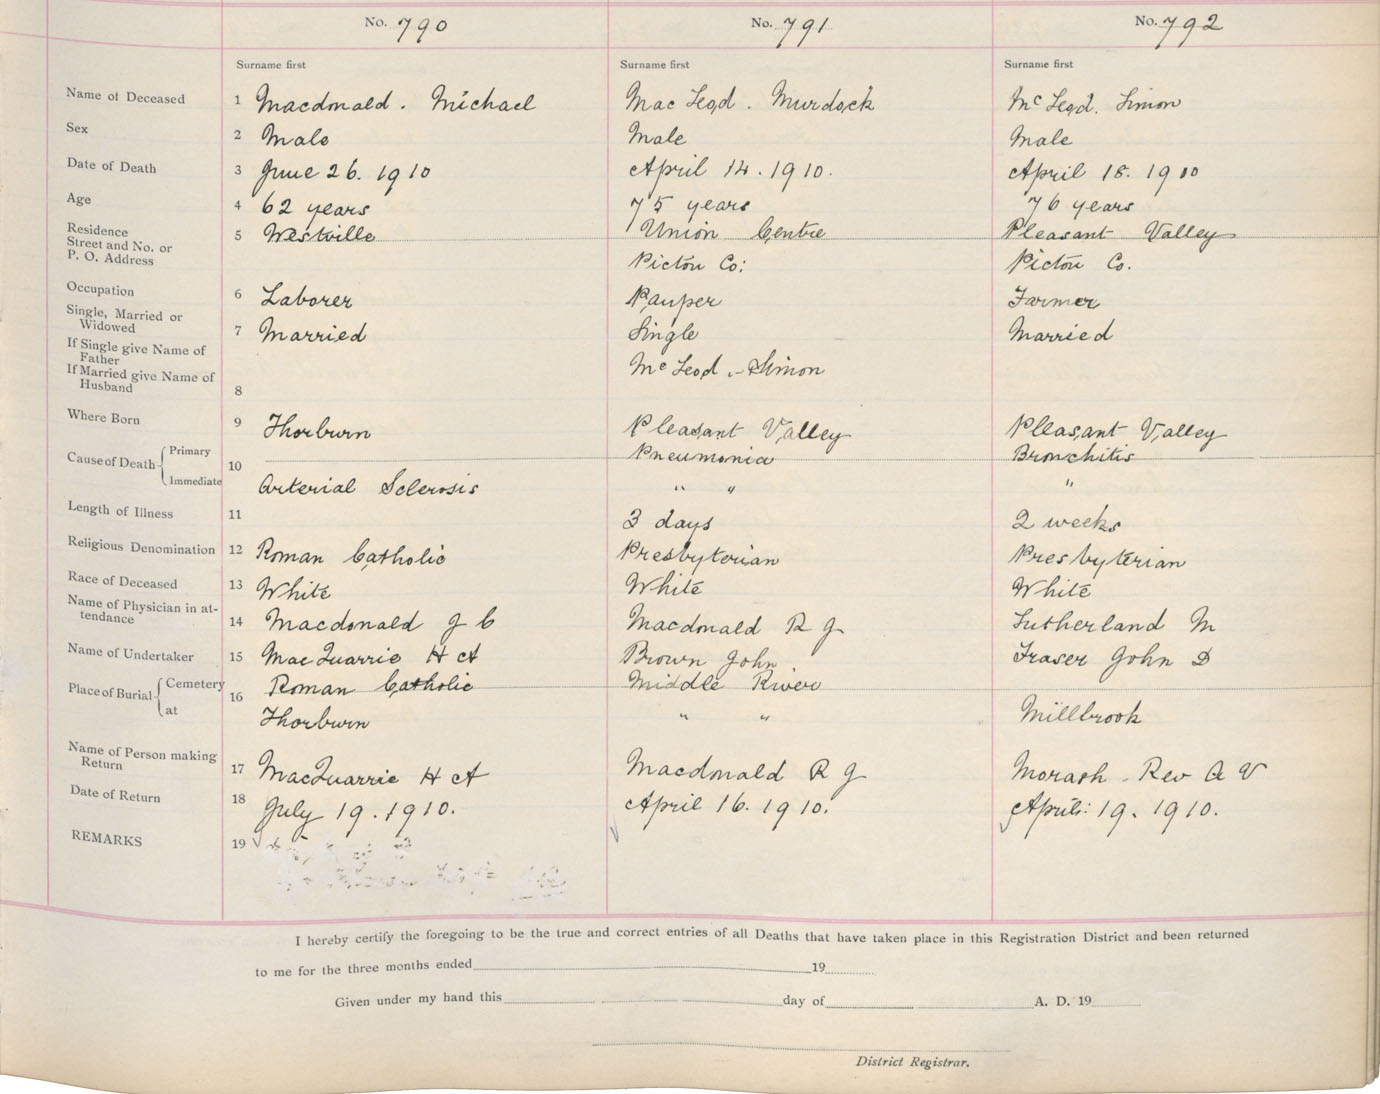 No. 790 No. 791 No. 792
Surname first Surname first Surname first
Name of Deceased 1 Macdonald. Michael Mac Leod. Murdock McLeod. Simon
Sex 2 Male Male Male
Date of Death 3 June 26. 1910 April 14. 1910. April 18. 1910
Age 4 62 years 75 years 76 years
Residence
Street and No. or
P. O. Address 5 Westville Union Centre Pleasant Valley
Pictou Co: Pictou Co.
Occupation 6 Laborer Pauper Farmer
Single, Married or
Widowed 7 Married Single Married
If Single give Name of
Father
McLeod.-Simon
If Married give Name of
Husband 8
Where Born 9 Thorburn Pleasant Valley Pleasant Valley
Cause of Death 10
Primary Pneumonia Bronchitis
Immediate Arterial Sclerosis " " "
Length of Illness 11 3 days 2 weeks
Religious Denomination 12 Roman Catholic Presbyterian Presbyterian
Race of Deceased 13 White White White
Name of Physician in at-
tendance 14 Macdonald J C Macdonald R J Sutherland M
Name of Undertaker 15 MacQuarrie H A Brown John Fraser John D
Place of Burial 16
Cemetery Roman Catholic Middle River
at Thorburn " " Millbrook
Name of Person making
Return 17 MacQuarrie H A Macdonald R J Morash - Rev A V
Date of Return 18 July 19. 1910. April 16. 1910. April: 19. 1910.
REMARKS 19
I hereby certify the foregoing to be the true and correct entries of all Deaths that have taken place in this Registration District and been returned
to me for the three months ended 19
Given under my hand this day of A. D. 19
District Registrar.